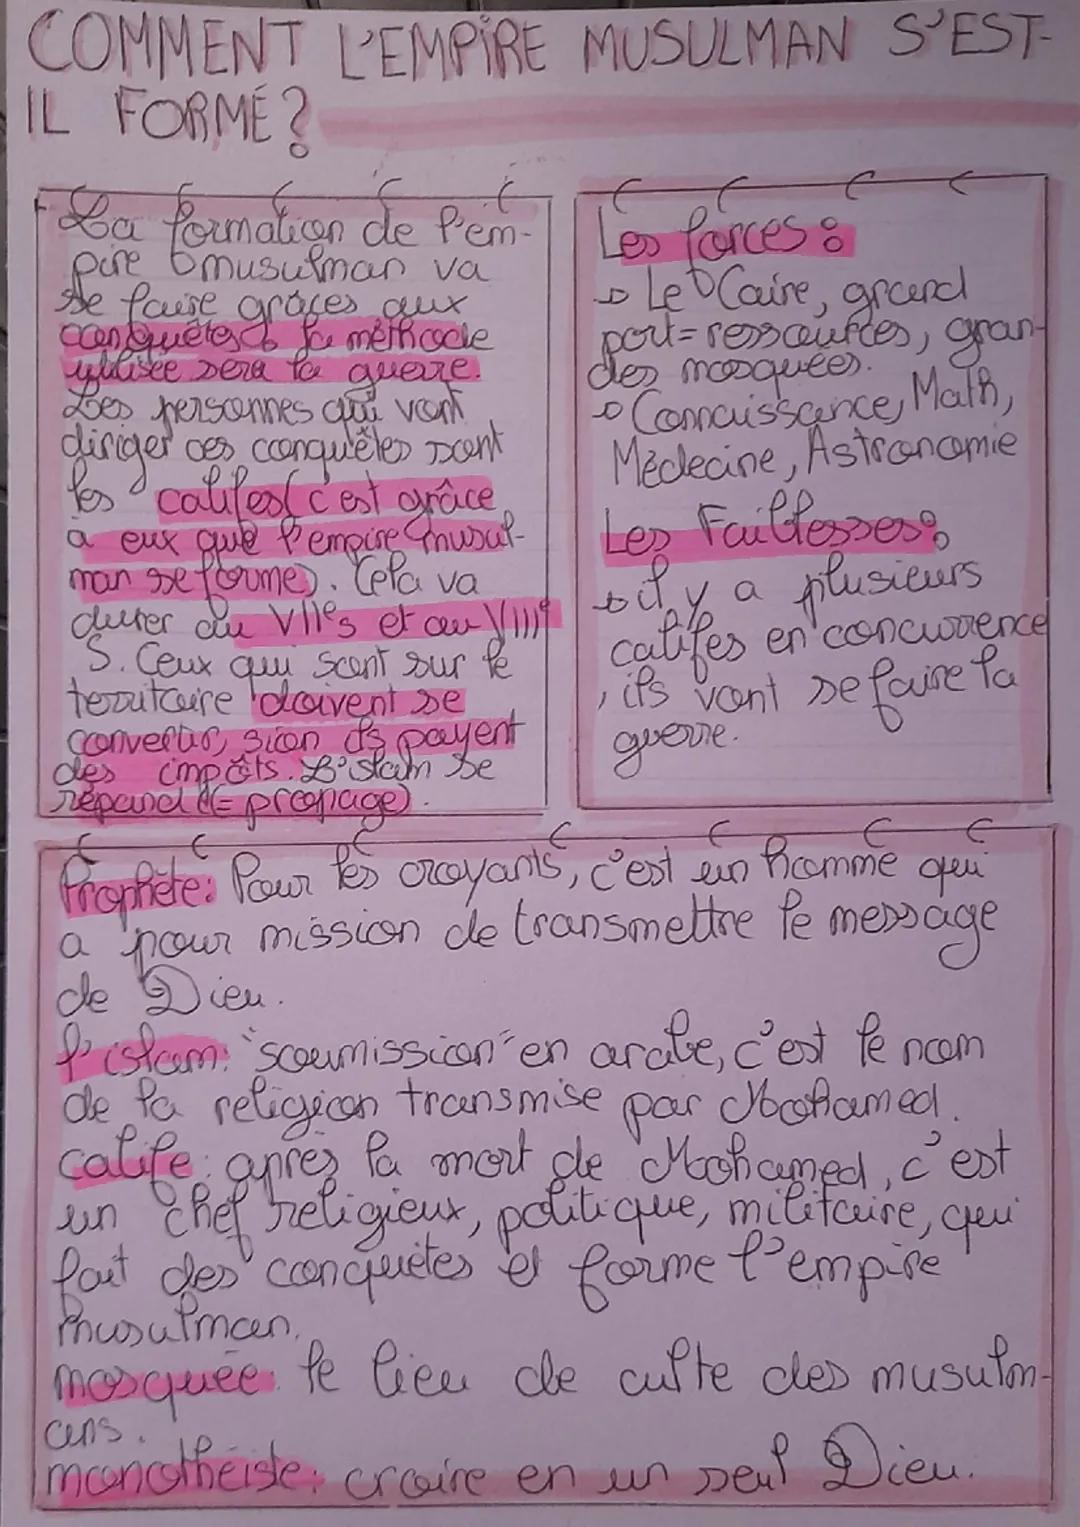 COMMENT L'EMPIRE MUSULMAN S'EST-
IL FORMÉ ?
La formation de l'em-
pire musulman va
se faire grâces aux
conquêtes & la méthode
utilisée sera la guerre.
Les personnes qui vont
diriger ces conquêtes sont
les califes (c'est grâce
à eux que l'empire musul-
man se forme). Cela va
durer du VIIe s et au VIIIe
S. Ceux qui sont sur le
territoire doivent se
convertir, sion ils payent
des impôts. L'islam se
répand (= propage).
Les forces :
→ Le Caire, grand
port = ressources, gran-
des mosquées.
→ Connaissance, Math,
Médecine, Astronomie
Les Faiblesses :
→ il y a plusieurs
califes en concurrence
, ils vont se faire la
guerre.
Prophète : Pour les croyants, c'est un homme qui
a pour mission de transmettre le message
de Dieu.
l'islam : "soumission" en arabe, c'est le nom
de la religion transmise par Mohamed.
calife : après la mort de Mohamed, c'est
un chef religieux, politique, militaire, qui
fait des conquêtes et forme l'empire
musulman.
mosquée : le lieu de culte des musulm-
ans.
monothéiste : croire en un seul Dieu.